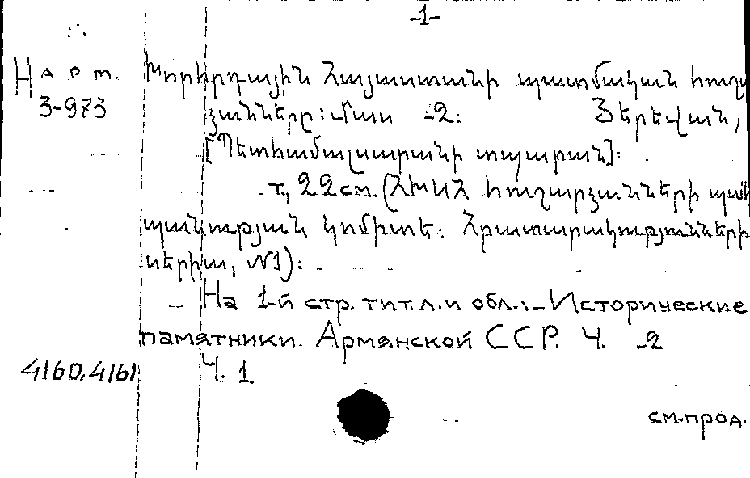 -1-
Н а р т. Խորհրդային Հայաստանի պատմական հուշ
3-973 յաններըː մաս -2: Յերեվան,
[Պետհամալսարանի տպարան]:
т., 22 см. (ՀԽՍՀ հուշարձանների պահ
պանության կոմիտե: Հրատարակությունների
սերիա, №1):
На 1-й стр. тит. л. и обл.: – Исторические
памятники. Армянской ССР. Ч. -2
4160,4161 Ч. 1
см. прод.